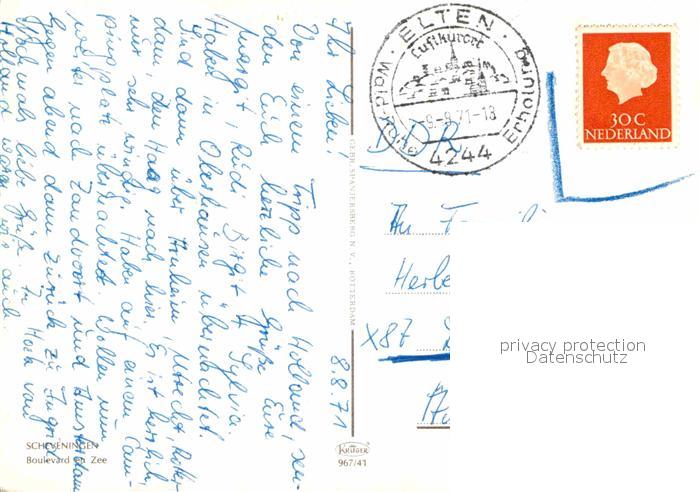 8.8.71
Ihr Lieben!
Von einem Tripp nach Holland, sen-
den Euch herzliche Grüße Eure
Margit, Rudi, Birgit + Sylvia.
Haben in Oberhausen übernachtet.
Sind dann über Arnheim, Utrecht, Rotter-
dam, den Haag nach hier. Es ist herrlich,
nur sehr windig. Haben auf einem Cam-
pingplatz übernachtet. Wollen nun
weiter nach Zandvoort und Amsterdam
Gegen abend dann zurück zu Ingrid
Nochmals liebe Grüße in Hoek van
Holland waren wir auch.
SCHEVENINGEN
Boulevard en Zee
GEBR. SPANJERSBERG N.V., ROTTERDAM
KRÜGER
967/41
ELTEN
Luftkurort
-9.-8.71-18
4244
Erholung
30 C
NEDERLAND
DDR
An
Herbe
X87
privacy protection
Datenschutz